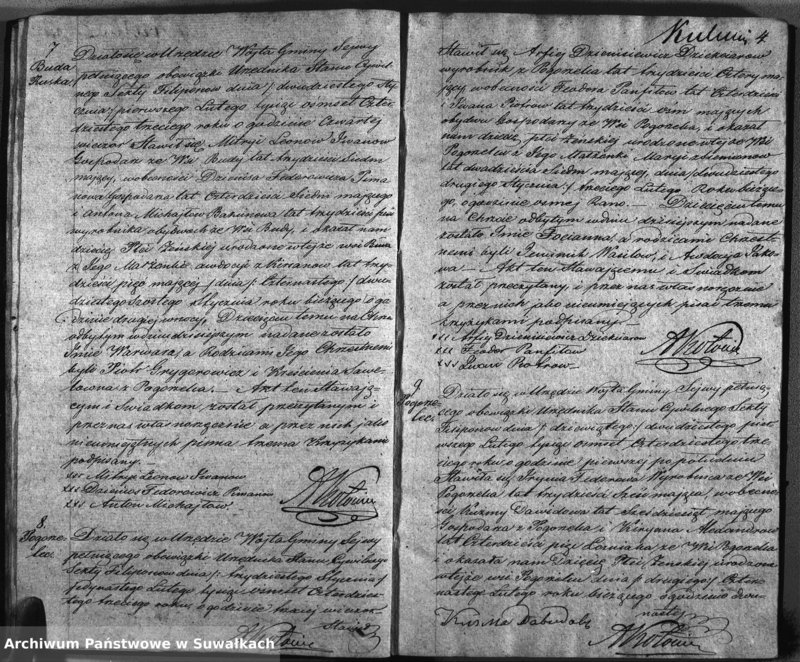 7.
Buda
Ruska
Działo się w Urzędzie Wójta Gminy Sejwy
pełniącego obowiązki Urzędnika Stanu Cywil-
nego Sekty Filiponow dnia /dwudziestego Sty-
cznia/ pierwszego Lutego tysiąc ośmset Czter-
dziestego trzeciego roku o godzinie Czwartej
wieczor Stawił się Mitryi Leonow Iwanow
Gospodarz ze Wsi Budy lat trzydzieści siedm
mający, w obecności Dzienisa Fedorowicza
Gospodarza lat Czterdzieści Siedm mającego
i Antona Michajłow lat trzydzieści
wyrobnika obydwuch ze Wsi Budy, i okazał nam
dziecię Płci Żeńskiej urodzone w tejże wsi
z Jego Małżonki Awdocyi z lat trzy-
dzieści pięć mającej, dnia /Czternastego/ dwu-
dziestego Szostego Stycznia roku bieżącego o go-
dzinie drugiej w nocy. Dziecięciu temu na Chrzcie
odbytym w dniu dzisiejszym nadane zostało
Imie Warwara, a Rodzicami Jego Chrzestnemi
byli Piotr Grygorowicz i Kresciena Sawe-
lowna z Pogorelca. — Akt ten Stawają-
cym i Swiadkom został przeczytanym i
przez nas własnoręcznie a przez nich jako
nieumiejętnych pisma trzema Krzyżykami
podpisany. —
xxx Mitryi Leonow Iwanow
xxx Dzienis Fedorowicz
xxx Anton Michajłow
AKotowicz
8.
Pogore-
lec.
Działo się w Urzędzie Wójta Gminy Sejwy
pełniącego obowiązki Urzędnika Stanu Cywilnego
Sekty Filiponow dnia /trzydziestego Stycznia/
jedynastego Lutego tysiąc ośmset Czterdzies-
tego trzeciego roku o godzinie trzeciej wieczor
Stawił
4
Stawił się Arfiy Dzienisiewicz
wyrobnik z Pogorelca lat trzydzieści Cztery ma-
jący w obecności Teodora Panfiłow lat Czterdzieści
i Iwana Piotrow lat trzydzieści ośm mających
obydwu Gospodarzy ze Wsi Pogorelca, i okazał
nam dziecię płci żeńskiej urodzone w tejże Wsi
Pogorelcu z Jego Małżonki Maryi
lat dwadzieścia Siedm mającej, dnia /dwudziestego
drugiego Stycznia/ trzeciego Lutego Roku bieżące-
go o godzinie osmej Rano. — Dziecięciu temu
na Chrzcie odbytym w dniu dzisiejszym nadane
zostało Imie a rodzicami Chrzest-
nemi byli Wasilow, i Awdocya
Akt ten Stawającemu i Swiadkom
został przeczytany, i przez nas własnoręcznie
a przez nich jako nieumiejących pisać trzema
krzyżykami podpisany. —
xxx Arfiy Dzienisiewicz
xxx Teodor Panfiłow
xxx Iwan Piotrow
AKotowicz
9.
Pogore-
lec.
Działo się w Urzędzie Wójta Gminy Sejwy pełnią-
cego obowiązki Urzędnika Stanu Cywilnego Sekty
Filiponow dnia /dziewiątego/ dwudziestego pier-
wszego Lutego tysiąc ośmset Czterdziestego trze-
ciego roku o godzinie pierwszej po południu
Stawiła się Iryna Fedorowa Wyrobnica ze Wsi
Pogorelca lat trzydzieści Sześć mająca, w obecno-
ści Kuzmy Dawidowa lat Sześćdziesiąt mającego
Gospodarza z Pogorelca i Kiryana
lat Czterdzieści pięć ze Wsi Pogorelca
i okazała nam Dziecię Płci Żeńskiej urodzone
w tejże wsi Pogorelcu dnia /drugiego/ Czter-
nastego Lutego roku bieżącego o godzinie dwu-
nastej
AKotowicz
Archiwum Państwowe w Suwałkach